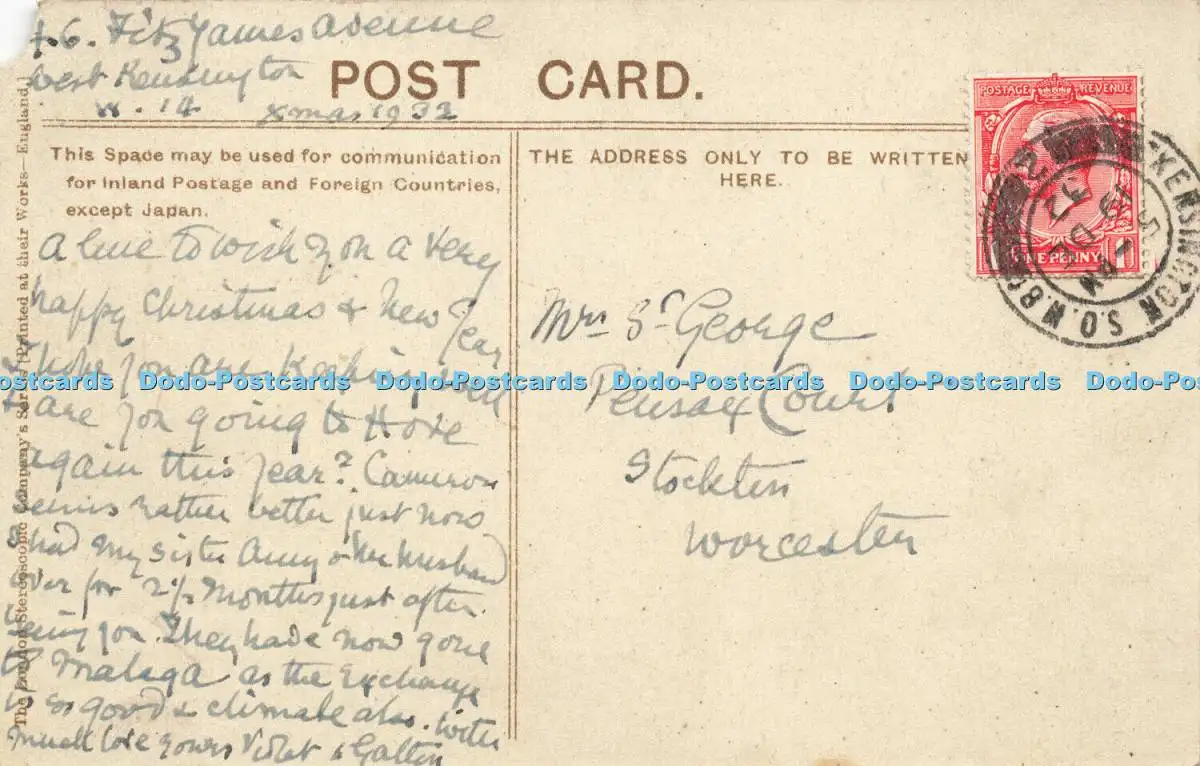 6. Fitz James avenue
West Kensington
W. 14 Xmas 1932
POST CARD.
This Space may be used for communication
for Inland Postage and Foreign Countries,
except Japan.
THE ADDRESS ONLY TO BE WRITTEN
HERE.
POSTAGE REVENUE
ONE PENNY 1
KENSINGTON S.O. W.8
The London Stereoscopic Company's Series (Printed at their Works—England.)
A line to wish you a very
happy Christmas & New Year
I hope you are keeping well
& are you going to Hove
again this year? Cameron
seems rather better just now
I had my sister Amy & her husband
over for 2½ months just after
seeing you. They have now gone
to Malaga as the Exchange
is so good & climate also. With
much love yours Violet
Mrs St. George
Pensax Court
Stockton
Worcester
Dodo-Postcards Dodo-Postcards Dodo-Postcards Dodo-Postcards Dodo-Postcards Dodo-Postcards